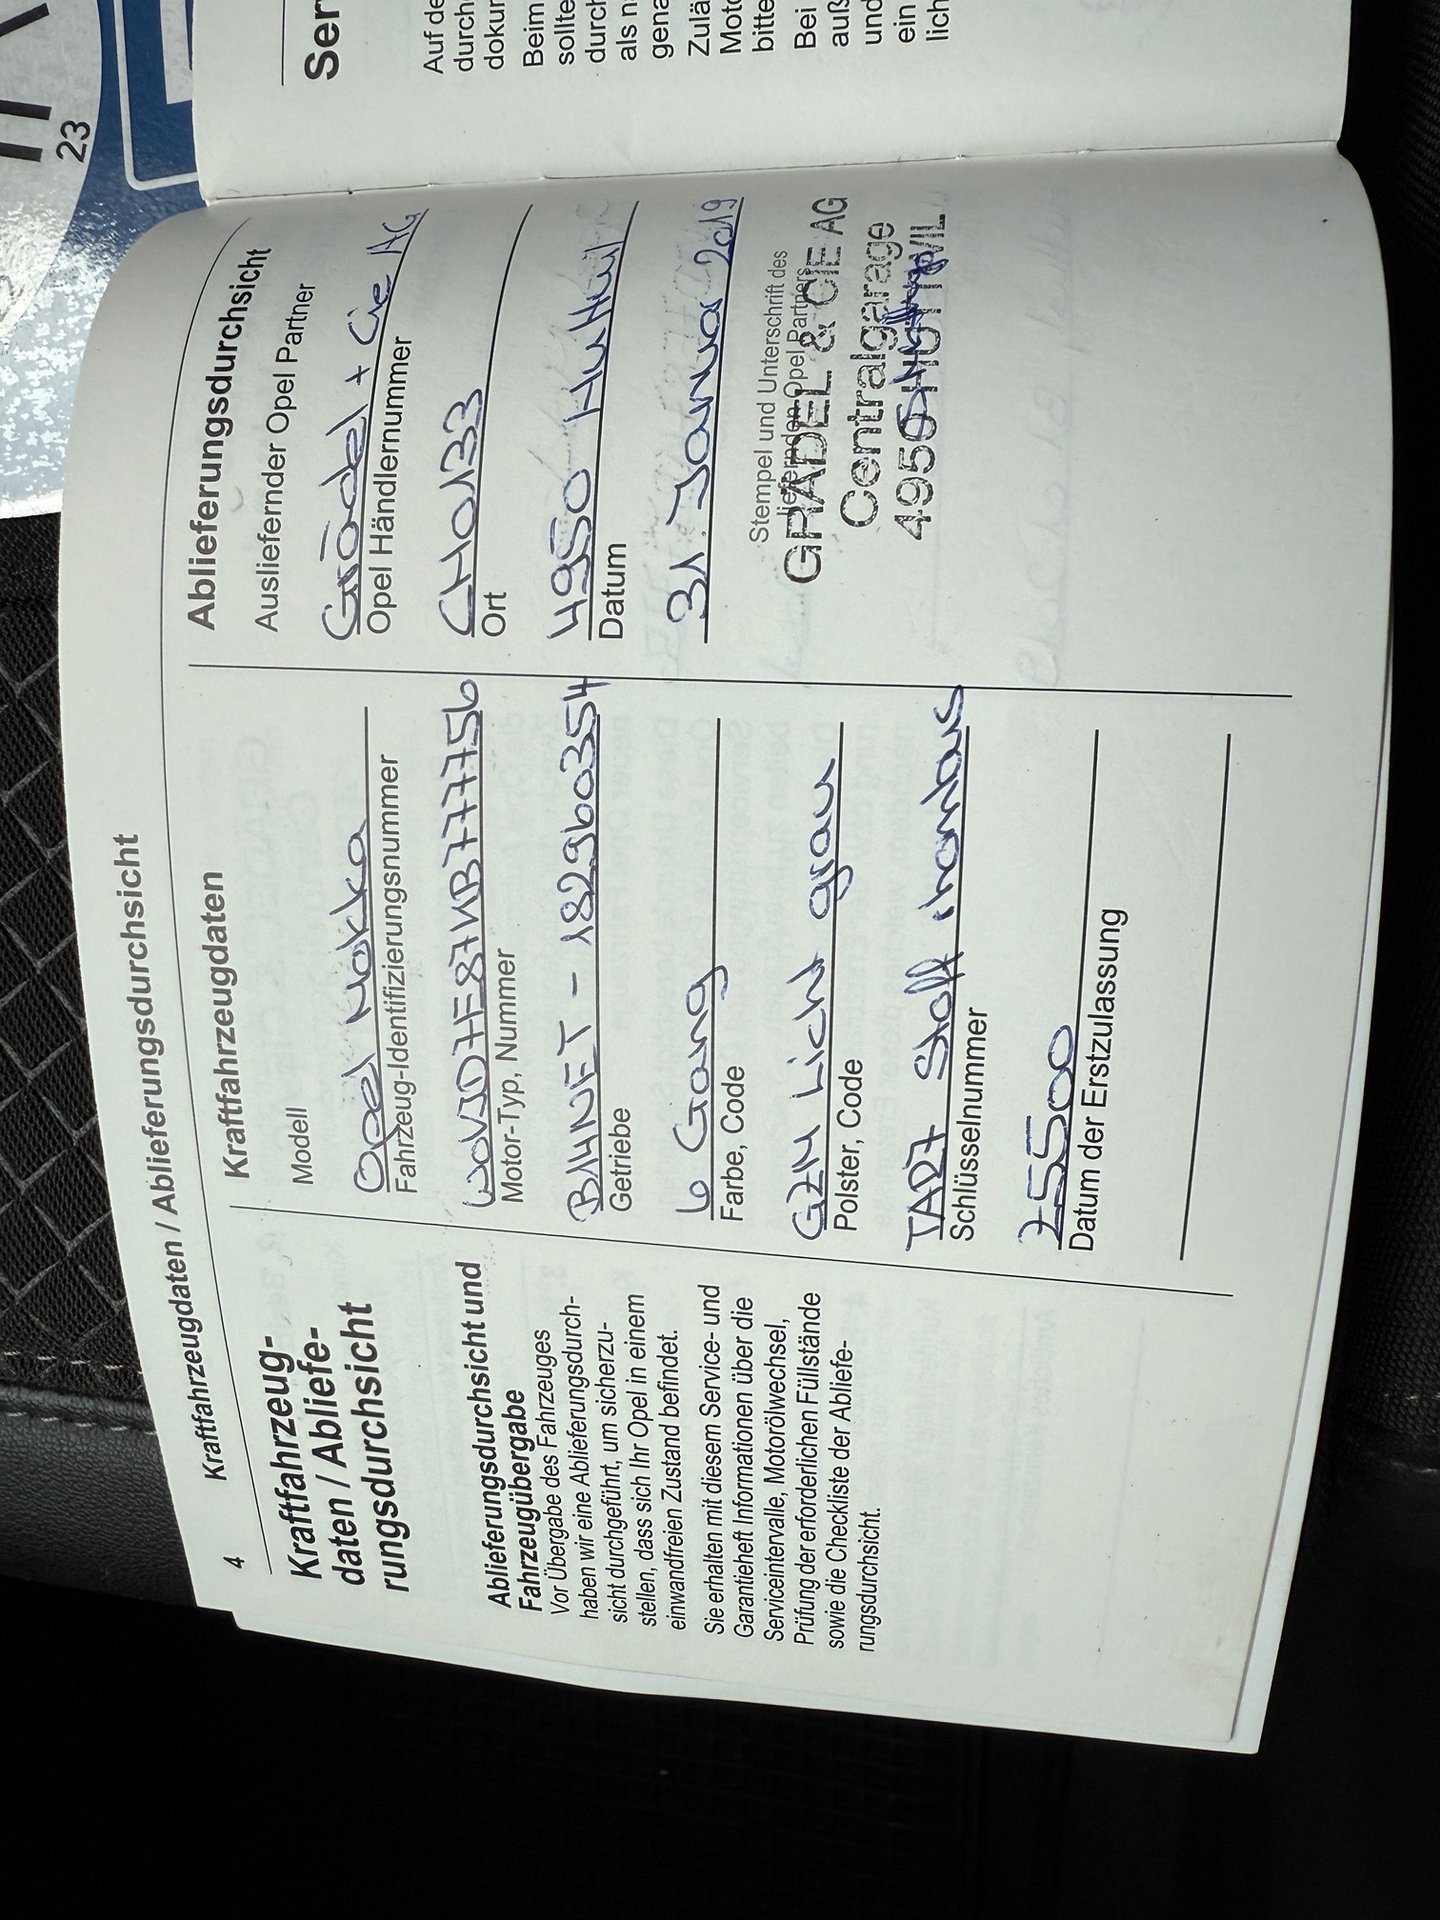 4
Kraftfahrzeugdaten / Ablieferungsdurchsicht
Kraftfahrzeug-
daten / Abliefe-
rungsdurchsicht
Ablieferungsdurchsicht und
Fahrzeugübergabe
Vor Übergabe des Fahrzeuges
haben wir eine Ablieferungsdurch-
sicht durchgeführt, um sicherzu-
stellen, dass sich Ihr Opel in einem
einwandfreien Zustand befindet.
Sie erhalten mit diesem Service- und
Garantieheft Informationen über die
Serviceintervalle, Motorölwechsel,
Prüfung der erforderlichen Füllstände
sowie die Checkliste der Abliefe-
rungsdurchsicht.
Kraftfahrzeugdaten
Modell
Opel Mokka
Fahrzeug-Identifizierungsnummer
Motor-Typ, Nummer
B14NET - 182960354
Getriebe
6 Gang
Farbe, Code
Licht grau
Polster, Code
TAR7 Stoff
Schlüsselnummer
Z5500
Datum der Erstzulassung
Ablieferungsdurchsicht
Ausliefernder Opel Partner
Grädel + Cie AG
Opel Händlernummer
CH0133
Ort
4950 Huttwil
Datum
31. Januar 2019
Stempel und Unterschrift des
liefernden Opel Partners
GRÄDEL & CIE AG
Centralgarage
4950 HUTTWIL
Ser
Auf de
durch
dokur
Beim
sollte
durch
als n
gena
Zulä
Moto
bitte
Bei
auß
und
ein
lich
23